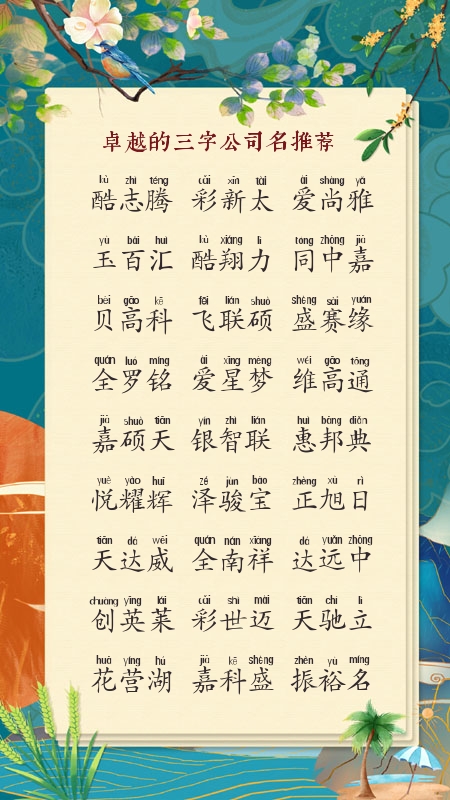 卓越的三字公司名推荐
kù zhì téng cǎi xīn tài ài shàng yǎ
酷志腾 彩新太 爱尚雅
yù bǎi huì kù xiáng lì tóng zhōng jiā
玉百汇 酷翔力 同中嘉
bèi gāo kē fēi lián shuò shèng sài yuán
贝高科 飞联硕 盛赛缘
quán luó míng ài xīng mèng wéi gāo tōng
全罗铭 爱星梦 维高通
jiā shuò tiān yín zhì lián huì bāng diǎn
嘉硕天 银智联 惠邦典
yuè yào huī zé jùn bǎo zhèng xù rì
悦耀辉 泽骏宝 正旭日
tiān dá wēi quán nán xiáng dá yuǎn zhōng
天达威 全南祥 达远中
chuàng yīng lái cǎi shì mài tiān chí lì
创英莱 彩世迈 天驰立
huā yíng hú jiā kē shèng zhèn yù míng
花营湖 嘉科盛 振裕名